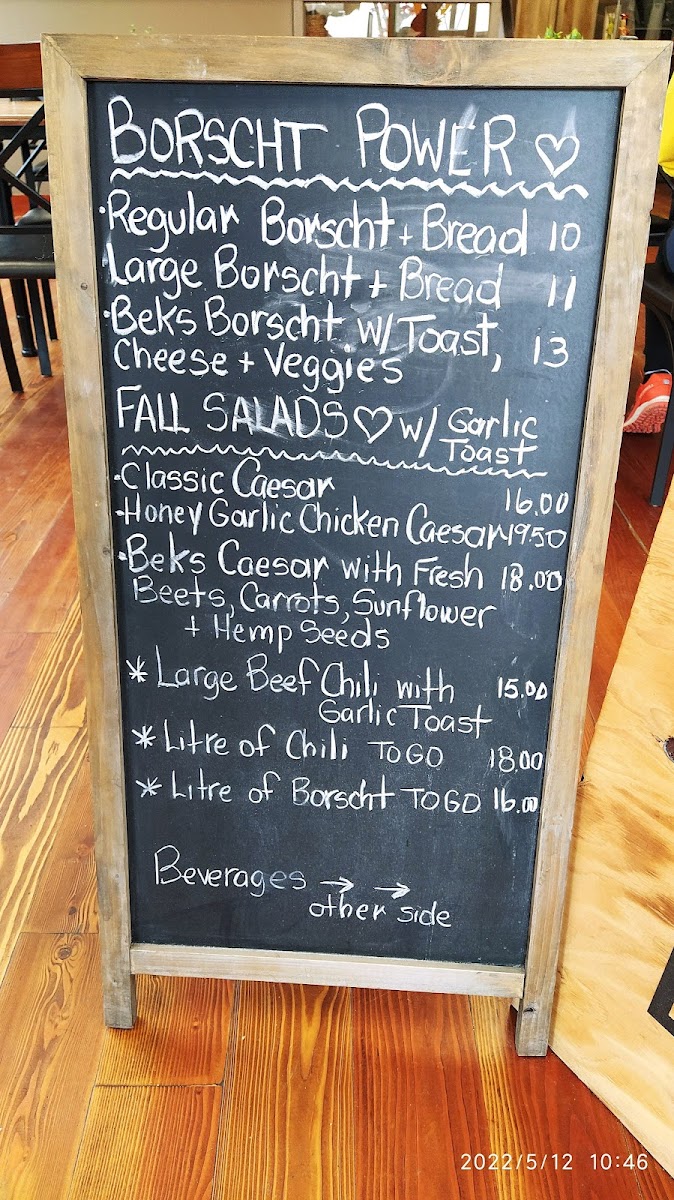 BORSCHT POWER ♡
·Regular Borscht + Bread 10
Large Borscht + Bread 11
·Beks Borscht w/ Toast, 13
Cheese + Veggies
FALL SALADS ♡ w/ Garlic
Toast
·Classic Caesar 16.00
·Honey Garlic Chicken Caesar 19.50
·Beks Caesar with Fresh 18.00
Beets, Carrots, Sunflower
+ Hemp Seeds
* Large Beef Chili with 15.00
Garlic Toast
* Litre of Chili TO GO 18.00
* Litre of Borscht TO GO 16.00
Beverages → →
other side
2022/5/12 10:46